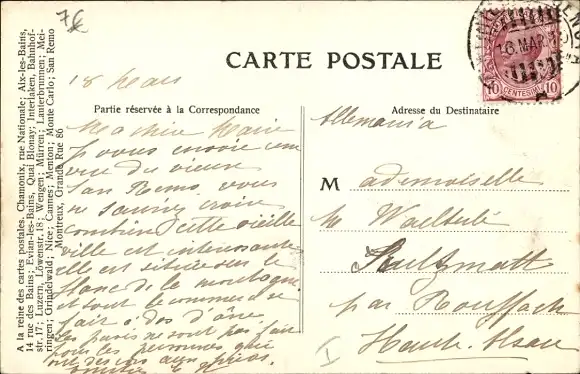 7€
CARTE POSTALE
18 Mars
Partie réservée à la Correspondance
Adresse du Destinataire
16 MAR
10 CENTESIMI 10
Ma chère Marie
Je vous envoie une
vue du vieux
San Remo vous
ne sauriez croire
combien cette vieille
ville est intéressante
elle est située sur le
flanc de la montagne
et tout le commerce se
fait à dos d'âne,
les pavés ne sont pas faits
pour les personnes qui
ont des cors aux pieds.
Allemania
Mademoiselle
M
Soultzmatt
par Rouffach
Haute-Alsace
A la reine des cartes postales. Chamonix, rue Nationale; Aix-les-Bains,
14 rue des Bains; Evian-les-Bains, Quai Blonay; Interlaken, Bahnhof-
str. 17; Luzern, Löwenstr. 18; Wengen; Mürren; Lauterbrunnen; Mei-
ringen; Grindelwald; Nice; Cannes; Menton; Monte Carlo; San Remo
Montreux, Grande Rue 86